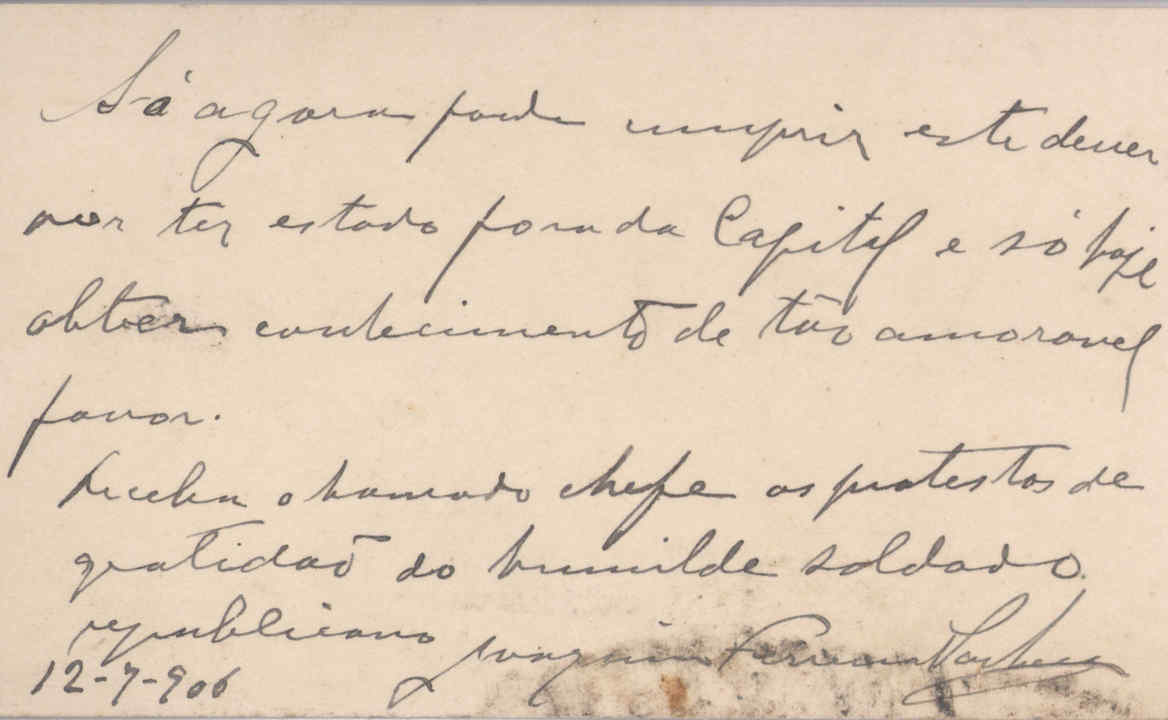 Só agora pode cumprir este dever
por ter estado fora da Capital e só hoje
obter conhecimento de tão amoravel
favor.
Receba o honrado chefe os protestos de
gratidaõ do humilde soldado
republicano Joaquim Pacheco
12-7-906